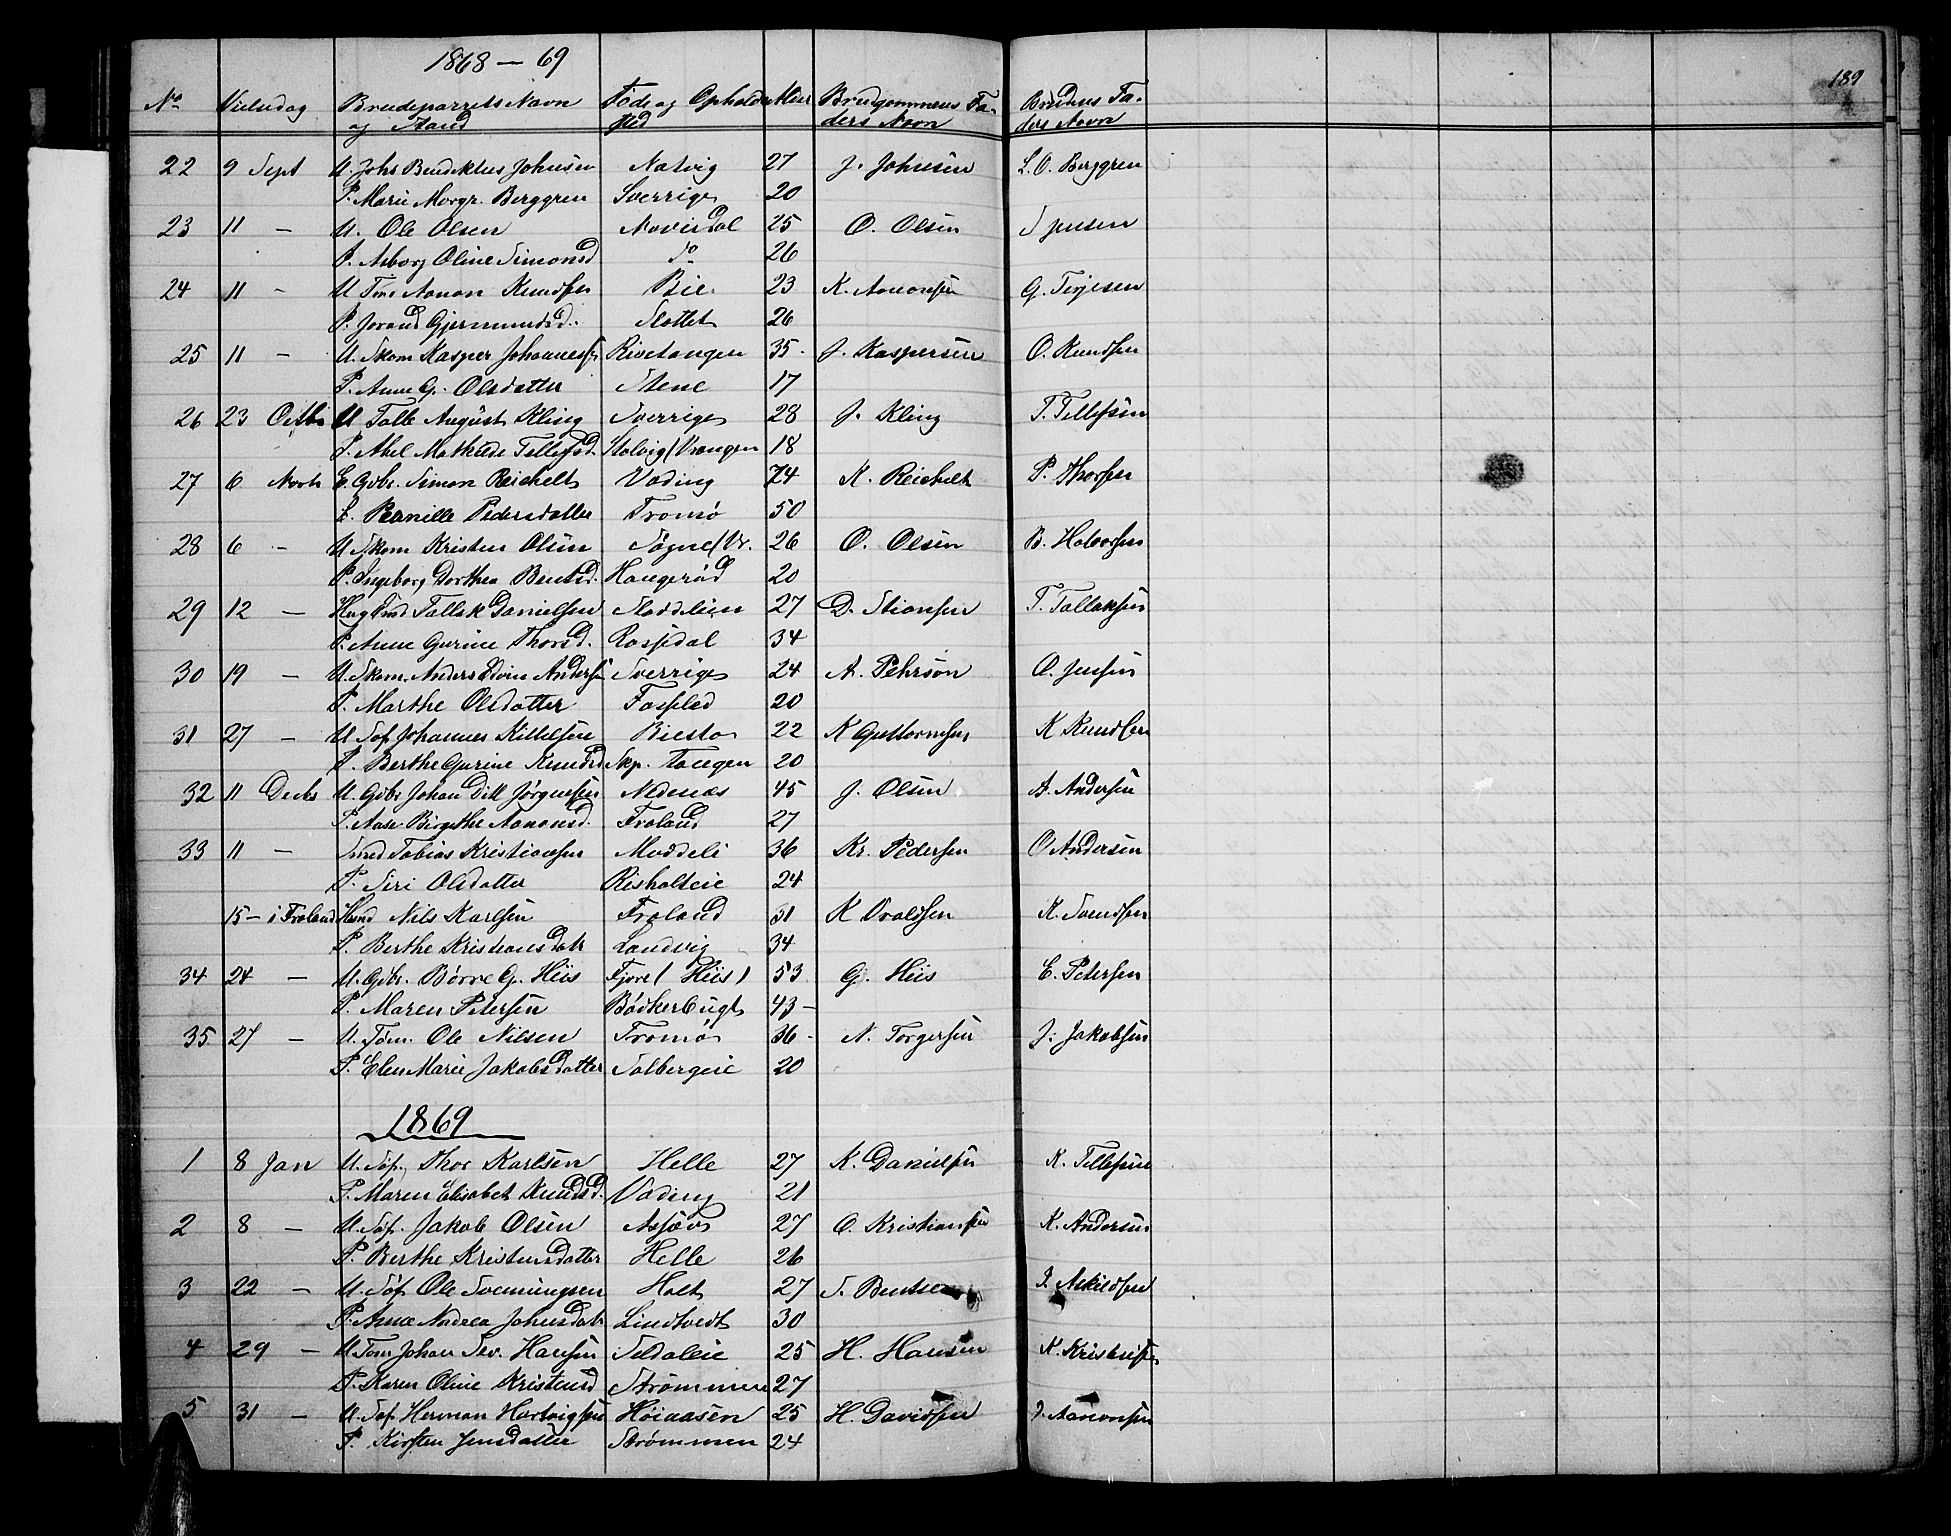 1868 – 69
189
No Vielsedag Brudeparrets Navn Føde og Opholds Alder Brudgommens Fa- Brudens Fa-
og Stand sted ders Navn ders Navn
22 9 Sept U. Johs Johnsen Natvig 27 J. Johnsen L. O. Berggren
P. Marie Margr. Berggren Sverrige 20
23 11 – U. Ole Olsen 25 O. Olsen S Jensen
P. Asborg Oline Simonsd do 26
24 11 – U Tms Aanon Knudsen Bie 23 K. Aanonsen G. Terjesen
P. Jorand Gjermundsd. Slottet 26
25 11 – U. Skom Kasper Johanness Rivetangen 35 J. Kaspersen O. Knudsen
P. Anne G. Olsdatter Stene 17
26 23 Octbr U August Kling Sverrige 28 J. Kling T. Tellefsen
P. Abel Mathilde Tellefsd. 18
27 6 Novbr E. Gdbr. Simon Reichelt Vading 74 K. Reichelt P. Thorsen
E. Pernille Pedersdatter Tromø 50
28 6 – U Skom Kristen Olsen Søgne/Vr. 26 O. Olsen B. Halvorsen
P. Ingeborg Dorthea Bentsd. Haugerød 20
29 12 – Tallak Danielsen 27 D. Stiansen T. Tallaksen
P. Anne Gurine Thorsd. Rossedal 34
30 19 – U. Skom. Anders Andersen Sverrige 24 A. Pehrson O. Jensen
P. Marthe Olsdatter 20
31 27 – U Søf Johannes Kittelsen Biestø 22 K Guttormsen K Knudsen
P. Berthe Gurine Knudsd Skp. Tangen 20
32 11 Decbr U. Gdbr. Johan Ditl Jørgensen Nedenæs 45 J. Olsen A. Andersen
P. Aase Birgithe Aanonsd. Froland 27
33 11 – Smed Tobias Kristiansen Moddeli 36 Kr. Pedersen O Andersen
P. Siri Olsdatter Risholteie 24
15 – i Froland Nils Karlsen Froland 31 K K. Svendsen
P. Berthe Kristiansdatr Landvig 34
34 24 – U. Gdbr. Børre G. Hiis Fjære (Hiis) 53 G. Hiis E. Petersen
P. Maren Petersen Bødkerbugt 43 –
35 27 – U. Tøm. Ole Nilsen Tromø 36 – N. Torgersen J. Jakobsen
P. Elen Marie Jakobsdatter Solbergeie 20
1869
1 8 Jan U. Søf. Thor Karlsen Helle 27 K. Danielsen K. Tellefsen
P. Maren Elisabet Knudsd. Vading 21
2 8 – U. Søf. Jakob Olsen 27 O. Kristiansen K. Andersen
P. Berthe Kristensdatter Helle 26
3 22 – U. Søf Ole Svenningsen Holt 27 S. Bentsen J. Askildsen
P. Anne Andrea Johnsdatr Lindtvedt 30
4 29 – U Tøm Johan Sev. Hansen Seldaleie 25 H. Hansen K. Kristensen
P. Karen Oline Kristensd Strømmen 27
5 31 – U. Søf Herman Hartvigsen Høiaasen 25 H. Davidsen J. Aanonsen
P. Kirsten Jensdatter Strømmen 24